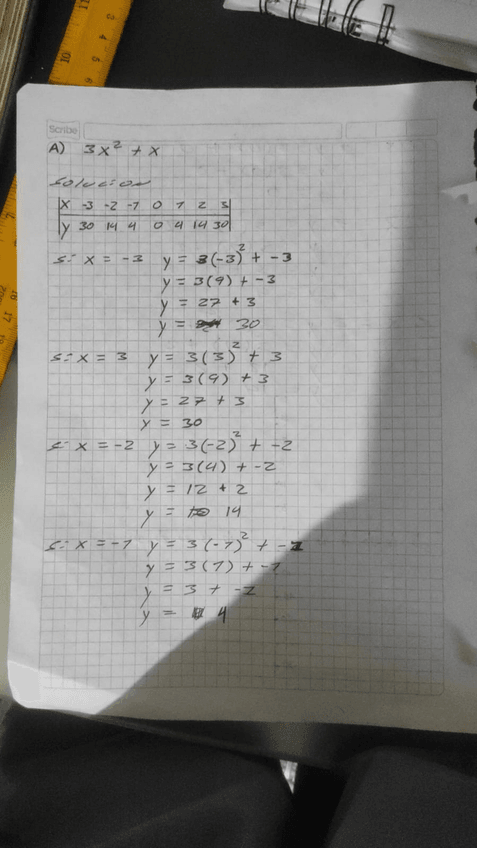 Scribe
A) 3x² + x
Solucion
x -3 -2 -1 0 1 2 3
y 30 14 4 0 4 14 30
si x = -3 y = 3(-3)² + -3
y = 3(9) + -3
y = 27 + 3
y = 30
si x = 3 y = 3(3)² + 3
y = 3(9) + 3
y = 27 + 3
y = 30
si x = -2 y = 3(-2)² + -2
y = 3(4) + -2
y = 12 + 2
y = 14
si x = -1 y = 3(-1)² + -1
y = 3(1) + -1
y = 3 + -1
y = 4